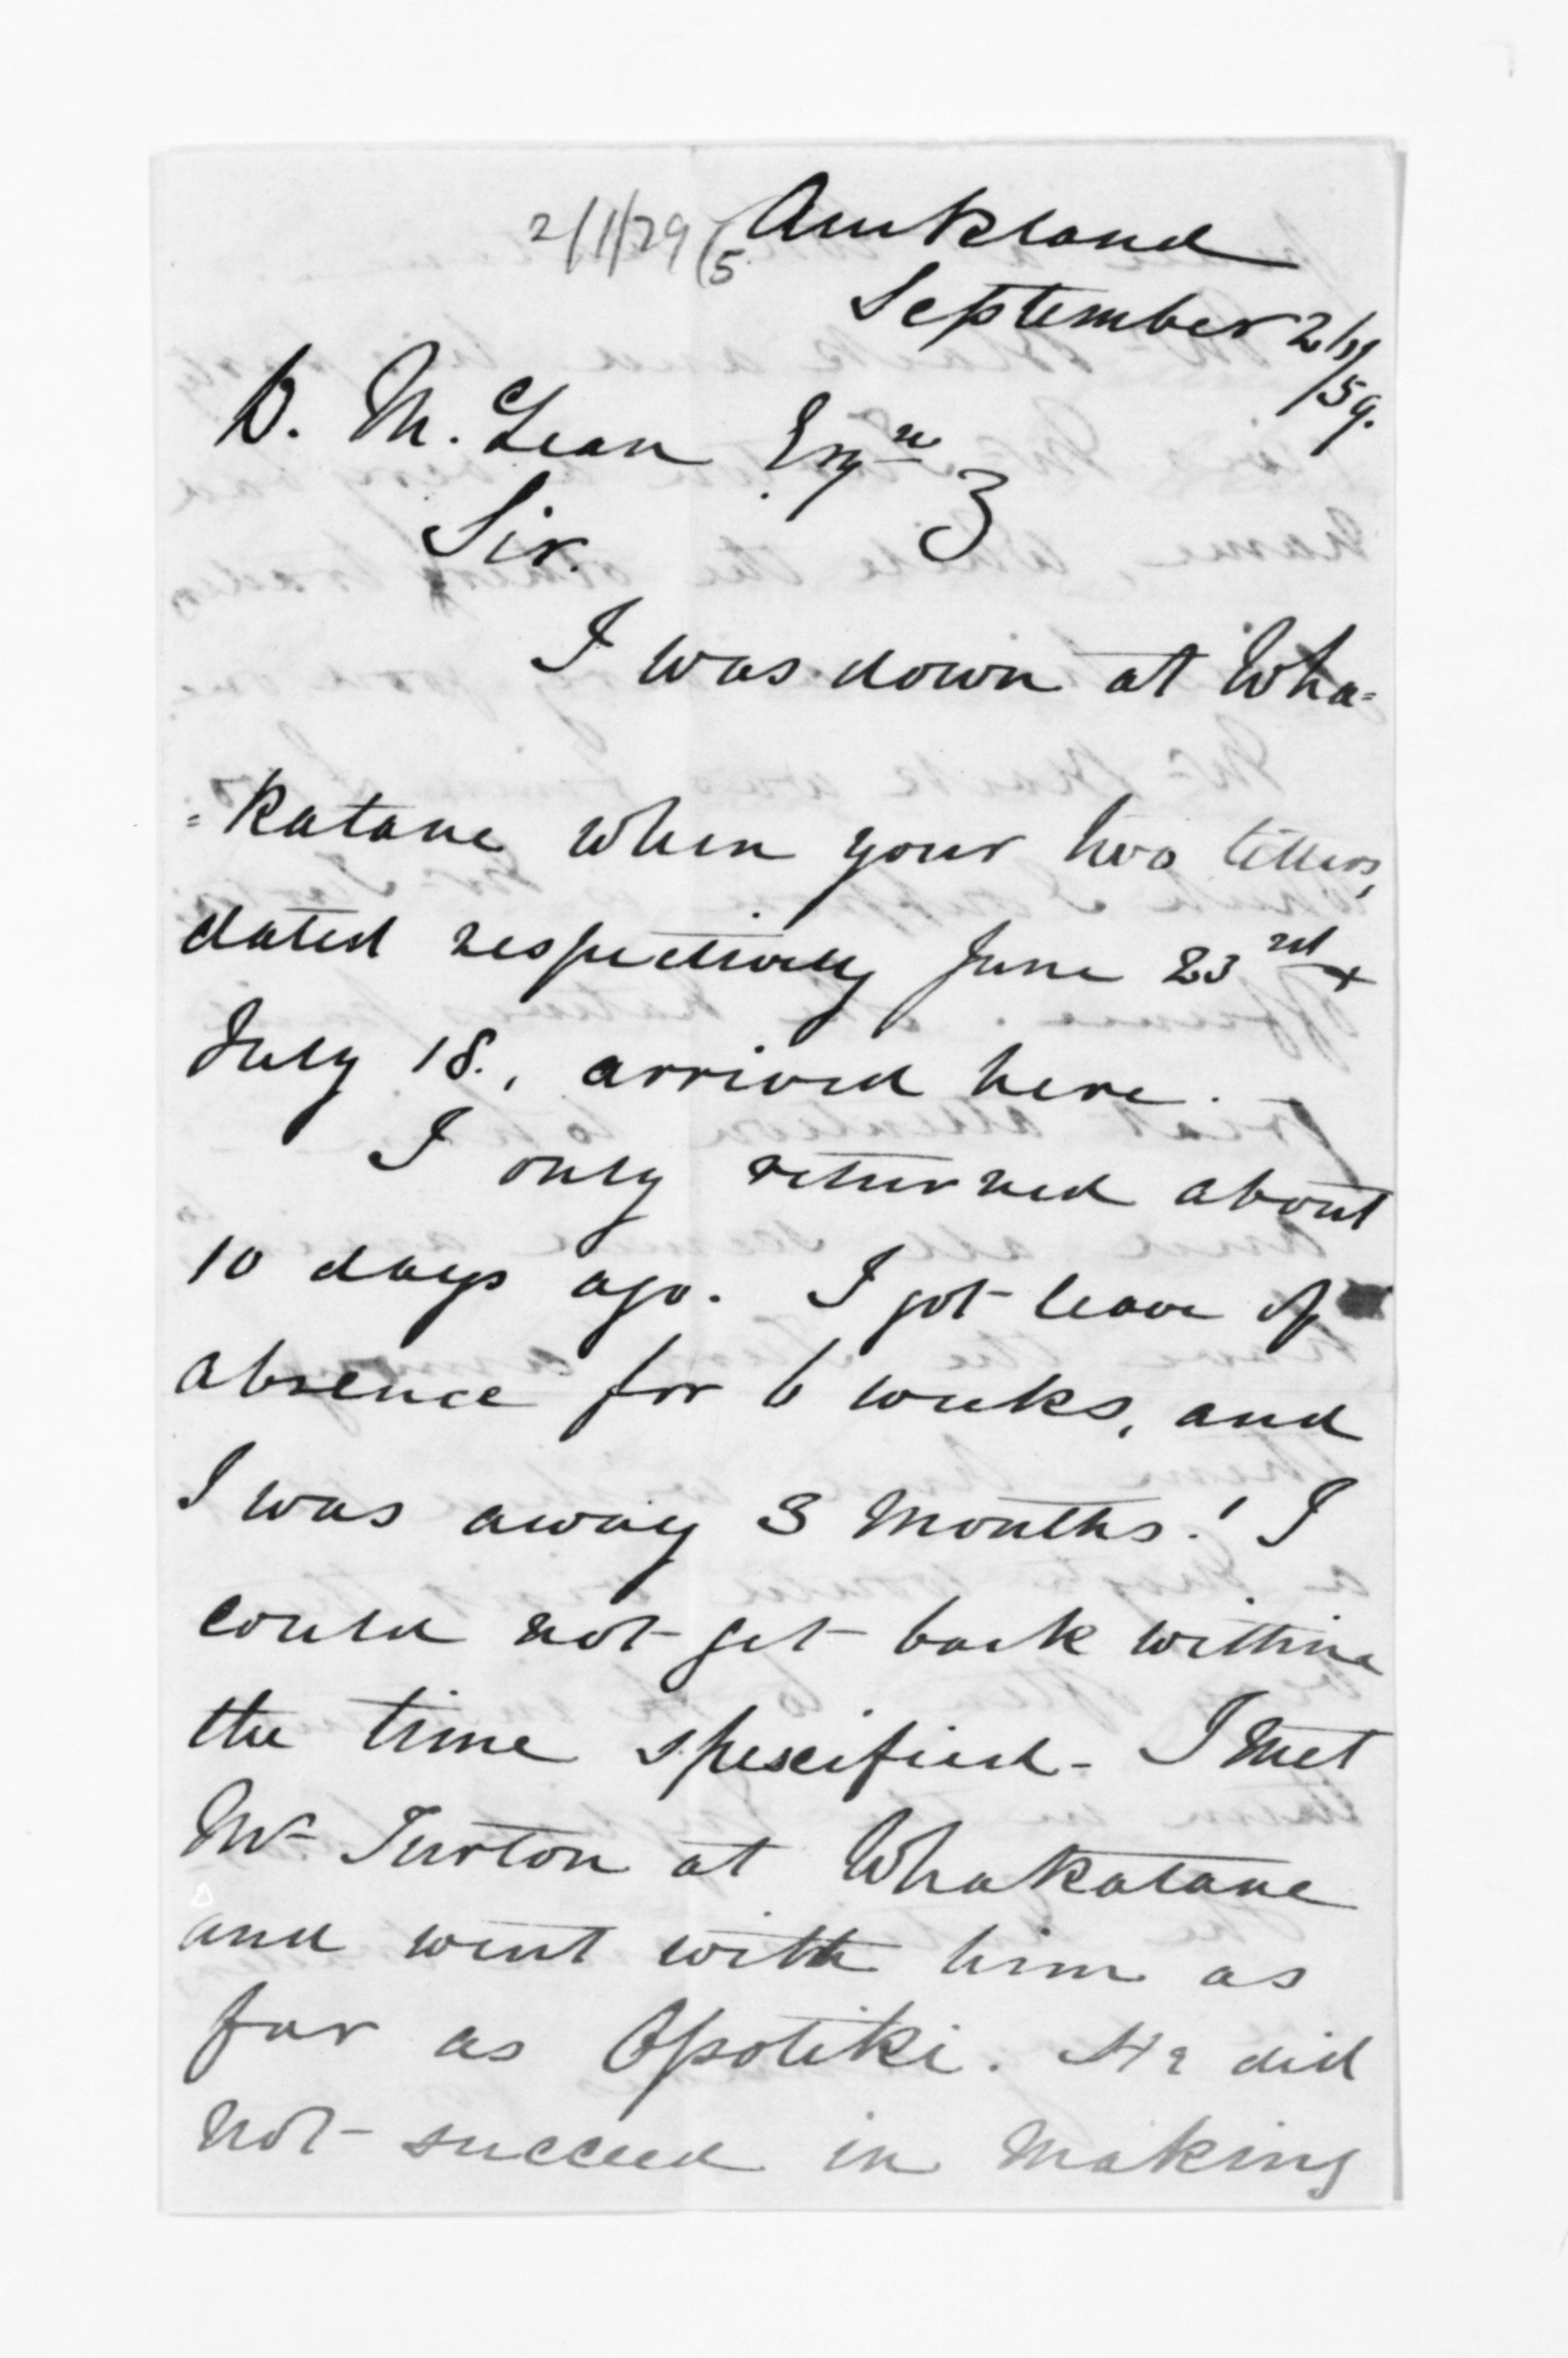 2/1/29 (5. Auckland
September 2/
/59.
D. M. Lean Esqre
Sir. }
I was down at Wha=
=katane when your two letters,
dated respectively June 23rd +
July 18., arrived here. —
I only returned about
10 days ago. I got leave of
absence for 6 weeks, and
I was away 3 months! I
could not get back within
the time specified - I met
Mr Turton at Whakatane
and went with him as
far as Opotiki. He did
not succeed in making